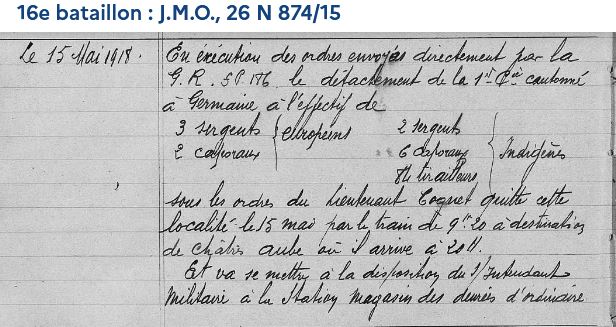 16e bataillon : J.M.O., 26 N 874/15
Le 15 Mai 1918. En éxécution des ordres envoyés directement par la
G. R. S.P. 176 le détachement de la 1re Cie cantonné
à Germaine à l'effectif de
3 sergents 2 sergents
2 caporaux européens 6 caporaux Indigènes
84 tirailleurs
sous les ordres du Lieutenant Coguet quitte cette
localité le 15 mai par le train de 9h20 à destination
de Châtres Aube où il arrive à 20 H.
Et va se mettre à la disposition du S/Intendant
Militaire à la Station magasin des denrées d'ordinaire